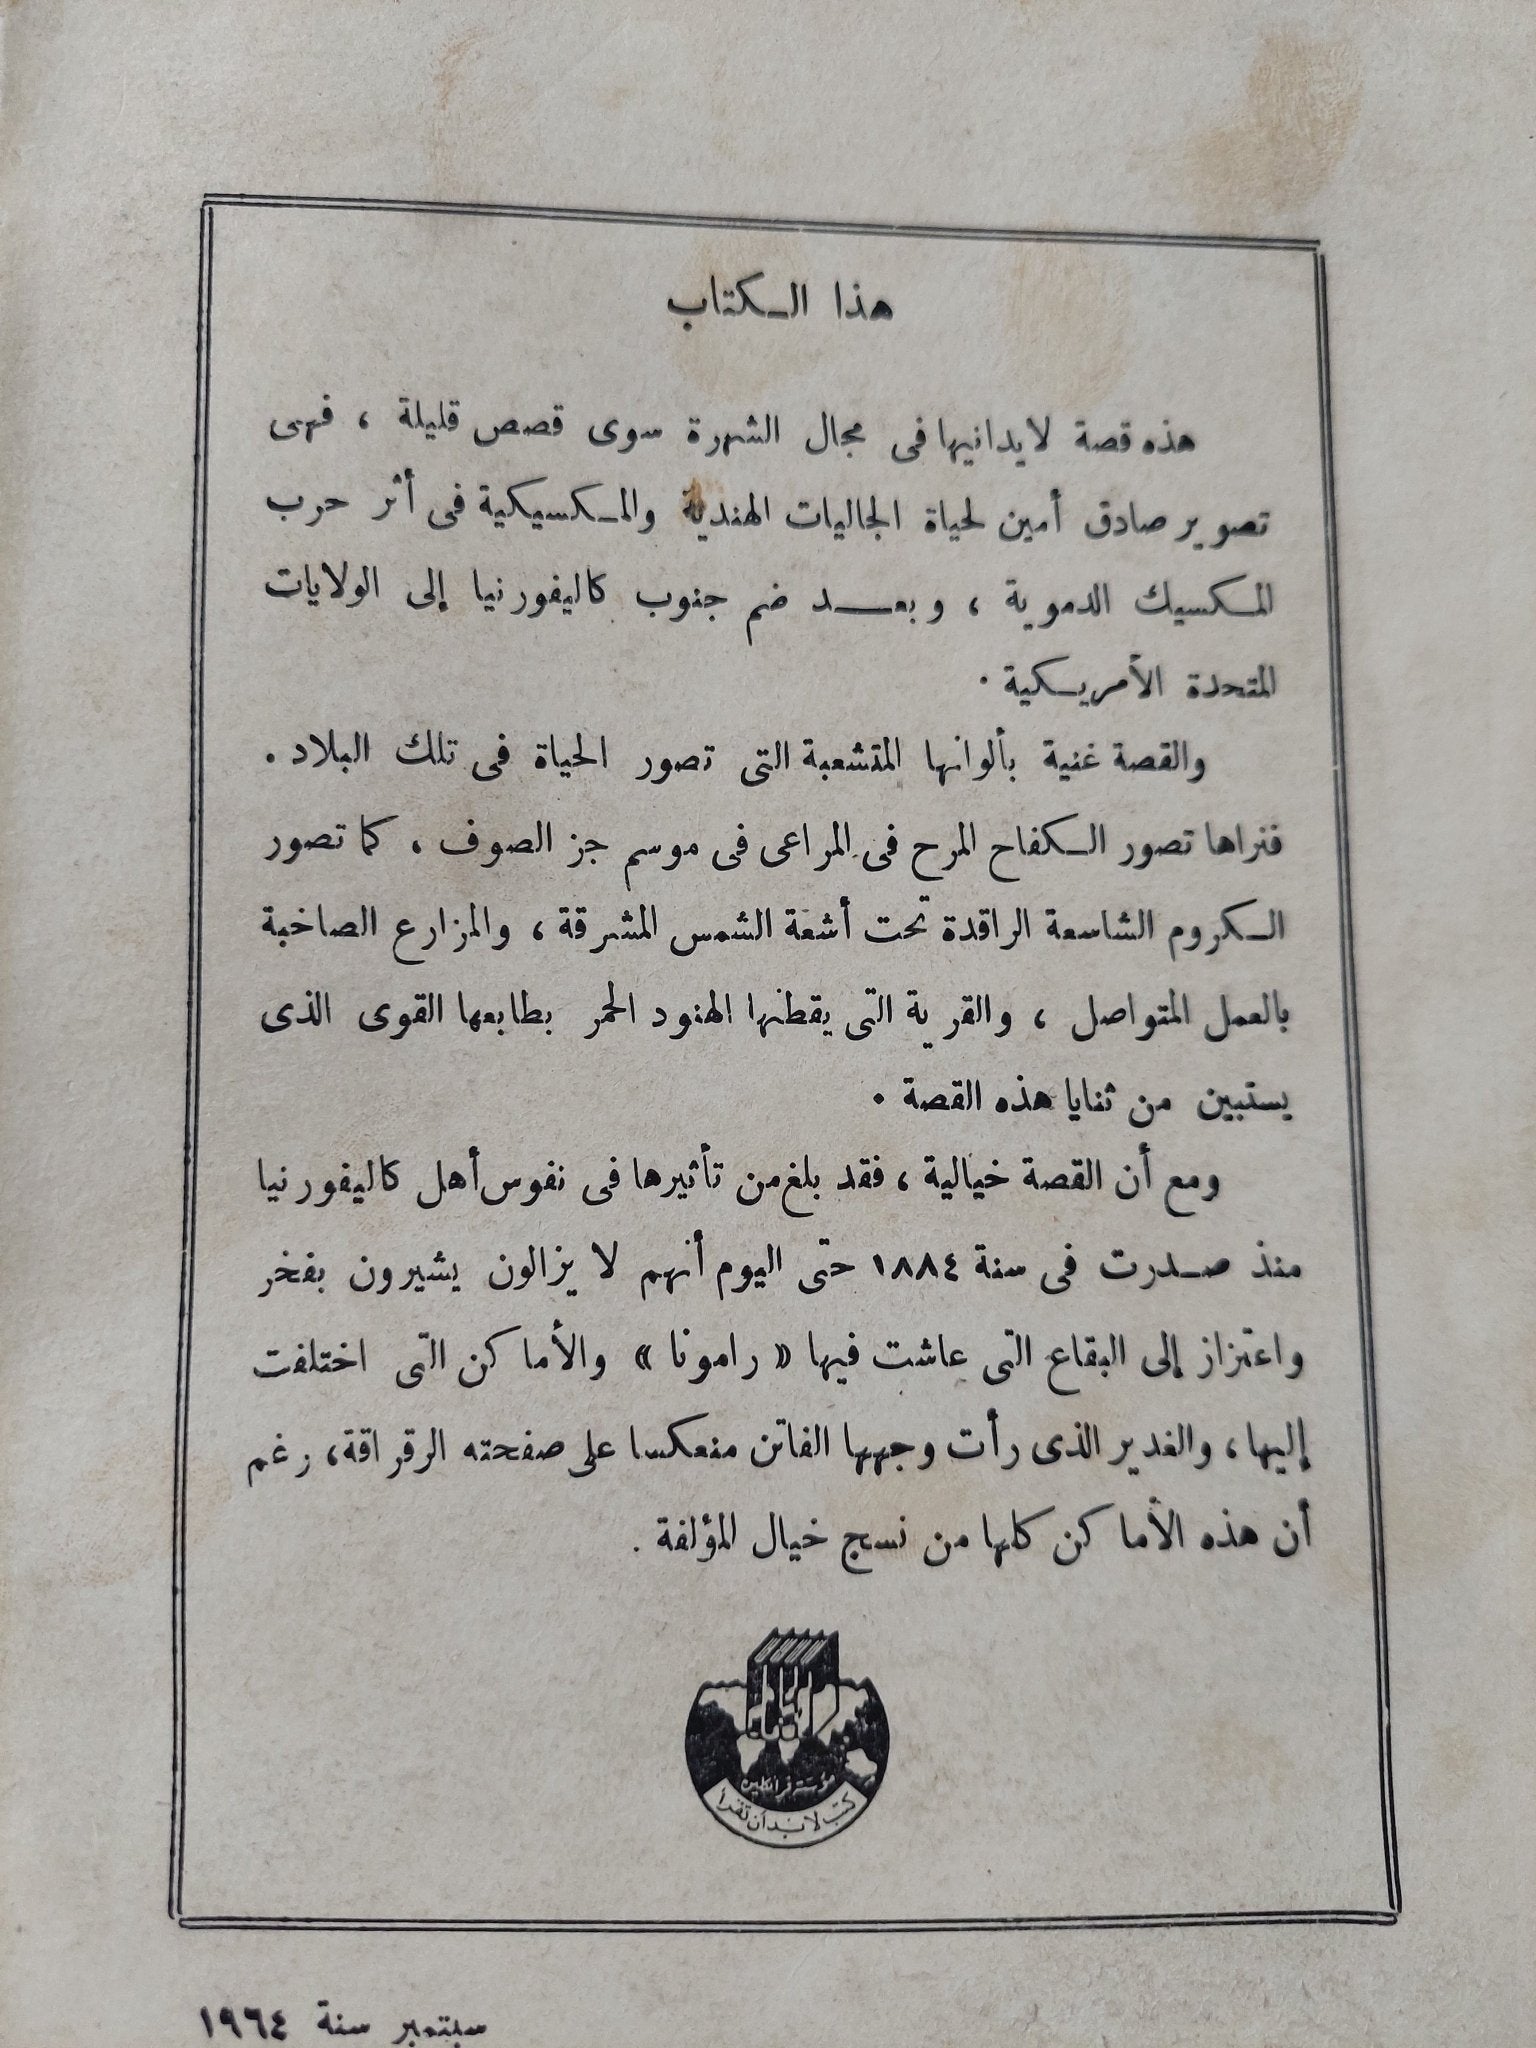 هذا الكتاب
هذه قصة لايدانيها فى مجال الشهرة سوى قصص قليلة ، فهى
تصوير صادق أمين لحياة الجاليات الهندية والمكسيكية فى أثر حرب
المكسيك الدموية ، وبعد ضم جنوب كاليفورنيا إلى الولايات
المتحدة الأمريكية .
والقصة غنية بألوانها المتشعبة التى تصور الحياة فى تلك البلاد .
فنراها تصور الكفاح المرح فى المراعى فى موسم جز الصوف ، كما تصور
الكروم الشاسعة الراقدة تحت أشعة الشمس المشرقة ، والمزارع الصاخبة
بالعمل المتواصل ، والقرية التى يقطنها الهنود الحمر بطابعها القوى الذى
يستبين من ثنايا هذه القصة .
ومع أن القصة خيالية ، فقد بلغ من تأثيرها فى نفوس أهل كاليفورنيا
منذ صدرت فى سنة ١٨٨٤ حتى اليوم أنهم لا يزالون يشيرون بفخر
واعتزاز إلى البقاع التى عاشت فيها « رامونا » والأماكن التى اختلفت
إليها ، والغدير الذى رأت وجهها الفاتن منعكسا على صفحته الرقراقة ، رغم
أن هذه الأماكن كلها من نسج خيال المؤلفة .
مؤسسة فرانكلين
كتب لابد أن تقرأ
سبتمبر سنة ١٩٦٤